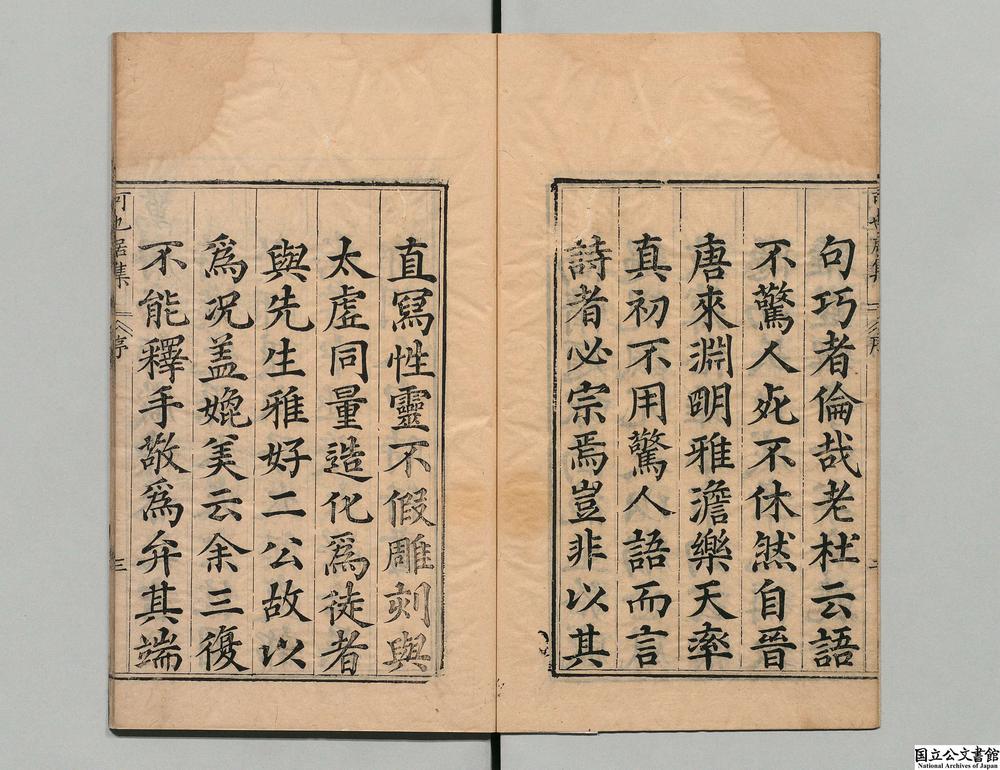 句巧者倫哉老杜云語
不驚人死不休然自晉
唐來淵明雅澹樂天率
真初不用驚人語而言
詩者必宗焉豈非以其
直寫性靈不假雕刻與
太虛同量造化為徒者
與先生雅好二公故以
為况盖媲美云余三復
不能釋手敬為弁其端
可也居集
序
三
国立公文書館
National Archives of Japan